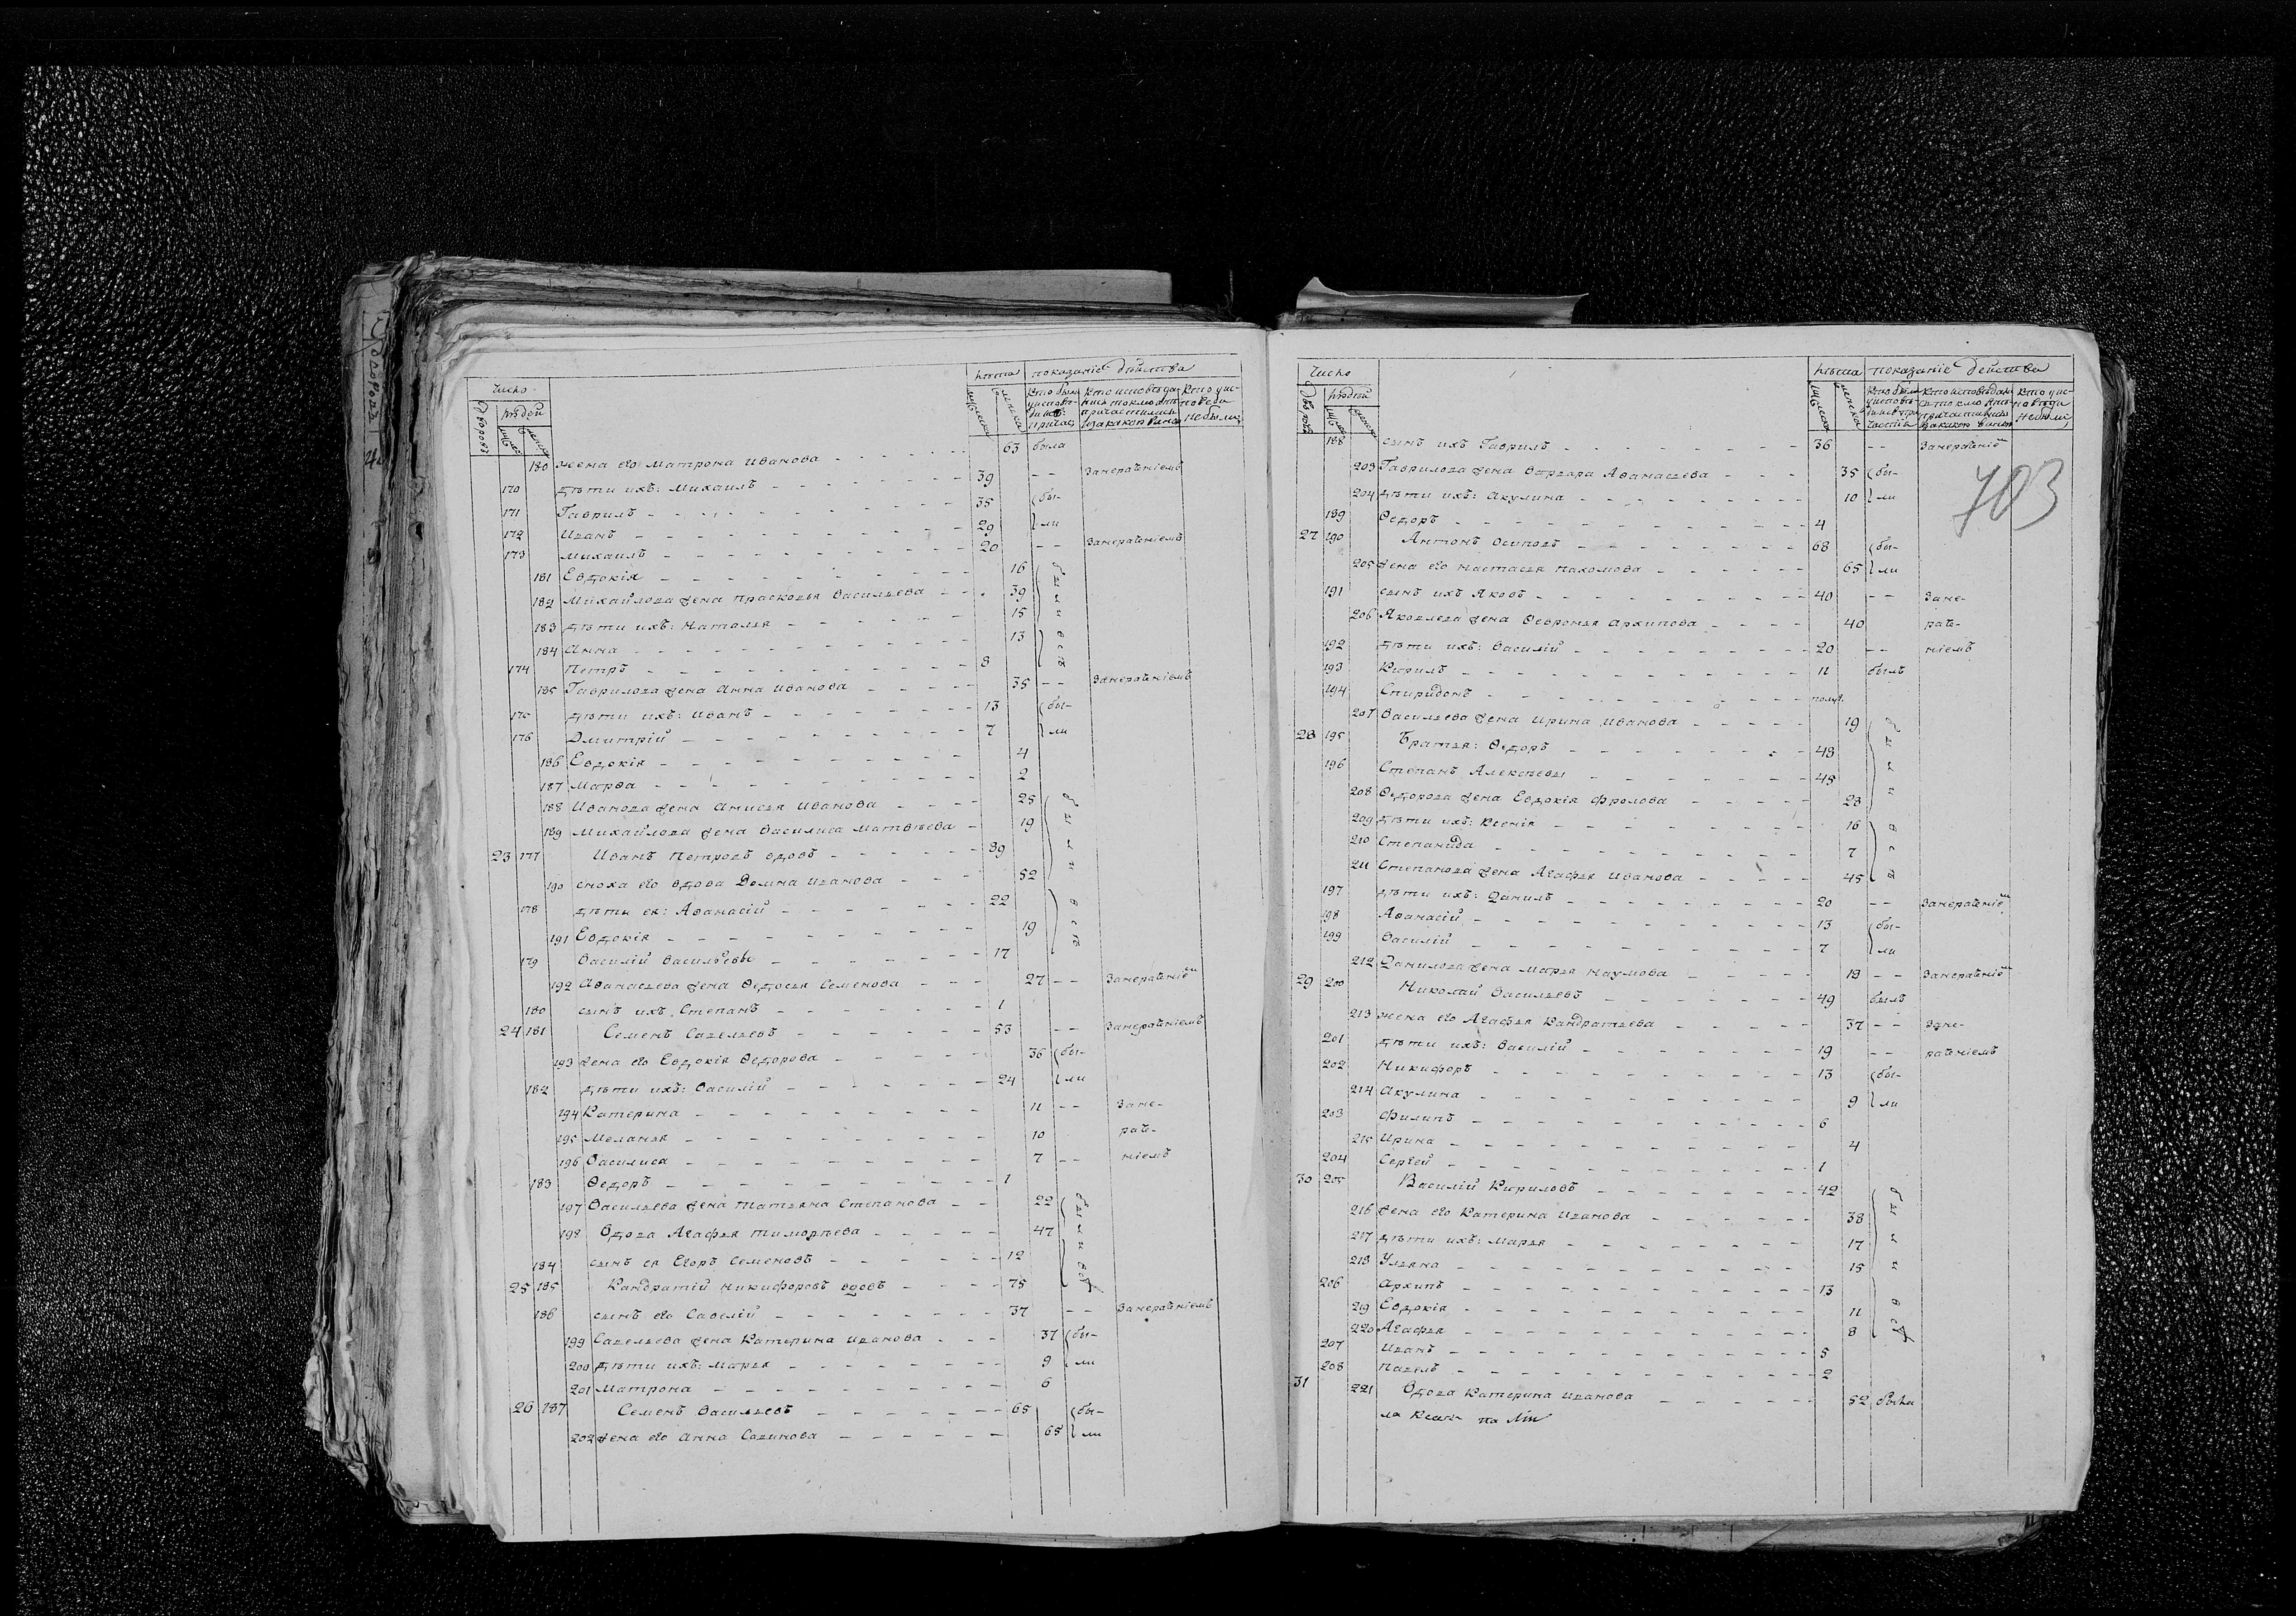 Число
лѣта показаніе действа
Дворовъ людей
180 жена его Матрона Иванова 63 была
170 дѣти ихъ: Михаилъ 39 -- занераченіемъ
171 Гаврилъ 35 бы-
172 Иванъ 29 ли
173 михаилъ 20 -- занераченіемъ
181 Евдокія 16 были
182 Михайлова жена Прасковья Васильева 39
183 дѣти ихъ: Наталья 15
184 Анна 13 всѣ
174 Петръ 8
185 Гаврилова жена Анна Иванова 35 -- занераченіемъ
175 дѣти ихъ: Иванъ 13 бы-
176 Дмитрій 7 ли
186 Евдокія 4
187 Марѳа 2
188 Иванова жена Анисья Иванова 25 были
189 Михайлова жена Василиса Матвѣева 19
23 177 Иванъ Петровъ вдовъ 89
190 сноха его вдова Домна Иванова 52
178 дѣти ея: Аѳанасій 22 всѣ
191 Евдокія 19
179 Василій Васильевъ 17
192 Аѳанасьева жена Ѳедосья Семенова 27 -- занераченіе
180 сынъ ихъ Степанъ 1
24 181 Семенъ Савельевъ 53 -- занераченіемъ
193 жена его Евдокія Ѳедорова 36 бы-
182 дѣти ихъ: Василій 24 ли
194 Катерина 11 -- зане-
195 Меланья 10 раче-
196 Василиса 7 -- ніемъ
183 Ѳедоръ 1
197 Васильева жена Татьяна Степанова 22 были всѣ
198 Вдова Агафья Тимофѣева 47
184 сынъ ея Егоръ Семеновъ 12
25 185 Кандратій Никифоровъ вдовъ 75
186 сынъ его Савелій 37 -- занераченіемъ
199 Савельева жена Катерина Иванова 37 бы-
200 дѣти ихъ: Марья 9 ли
201 Матрона 6
26 187 Семенъ Васильевъ 65 бы-
202 жена его Анна Савинова 65 ли
Число
лѣта показаніе действа
Дворовъ людей
703
188 сынъ ихъ Гаврилъ 36 -- занераченіе
203 Гаврилова жена Варвара Аѳанасьева 35 бы-
204 дѣти ихъ: Акулина 10 ли
189 Ѳедоръ 4
27 190 Антонъ Осиповъ 68 бы-
205 жена его Настасья Пахомова 65 ли
191 сынъ ихъ Яковъ 40 -- зане-
206 Яковлева жена Ѳевронья Архипова 40 раче-
192 дѣти ихъ: Василій 20 -- ніемъ
193 Кирилъ 11 былъ
194 Спиридонъ полуг.
207 Васильева жена Ирина Иванова 19 были
28 195 Братья: Ѳедоръ 48
196 Степанъ Алексѣевы 45
208 Ѳедорова жена Евдокія Фролова 28
209 дѣти ихъ: Ксенія 16 всѣ
210 Степанида 7
211 Степанова жена Агафья Иванова 45
197 дѣти ихъ: Данилъ 20 -- занераченіе
198 Аѳанасій 13 бы-
199 Василій 7 ли
212 Данилова жена Марья Наумова 19 -- занераченіе
29 200 Николай Васильевъ 49 былъ
213 жена его Агафья Кандратьева 37 -- зане-
201 дѣти ихъ: Василій 19 -- раченіемъ
202 Никифоръ 13 бы-
214 Акулина 9 ли
203 Филипъ 6
215 Ирина 4
204 Сергей 1
30 205 Василій Кириловъ 42 были
216 жена его Катерина Иванова 38
217 дѣти ихъ: Марья 17
218 Ульяна 15
206 Архипъ 13 всѣ
219 Евдокія 11
220 Агафья 8
207 Иванъ 5
208 Павелъ 2
31 221 Вдова Катерина Иванова 52 была